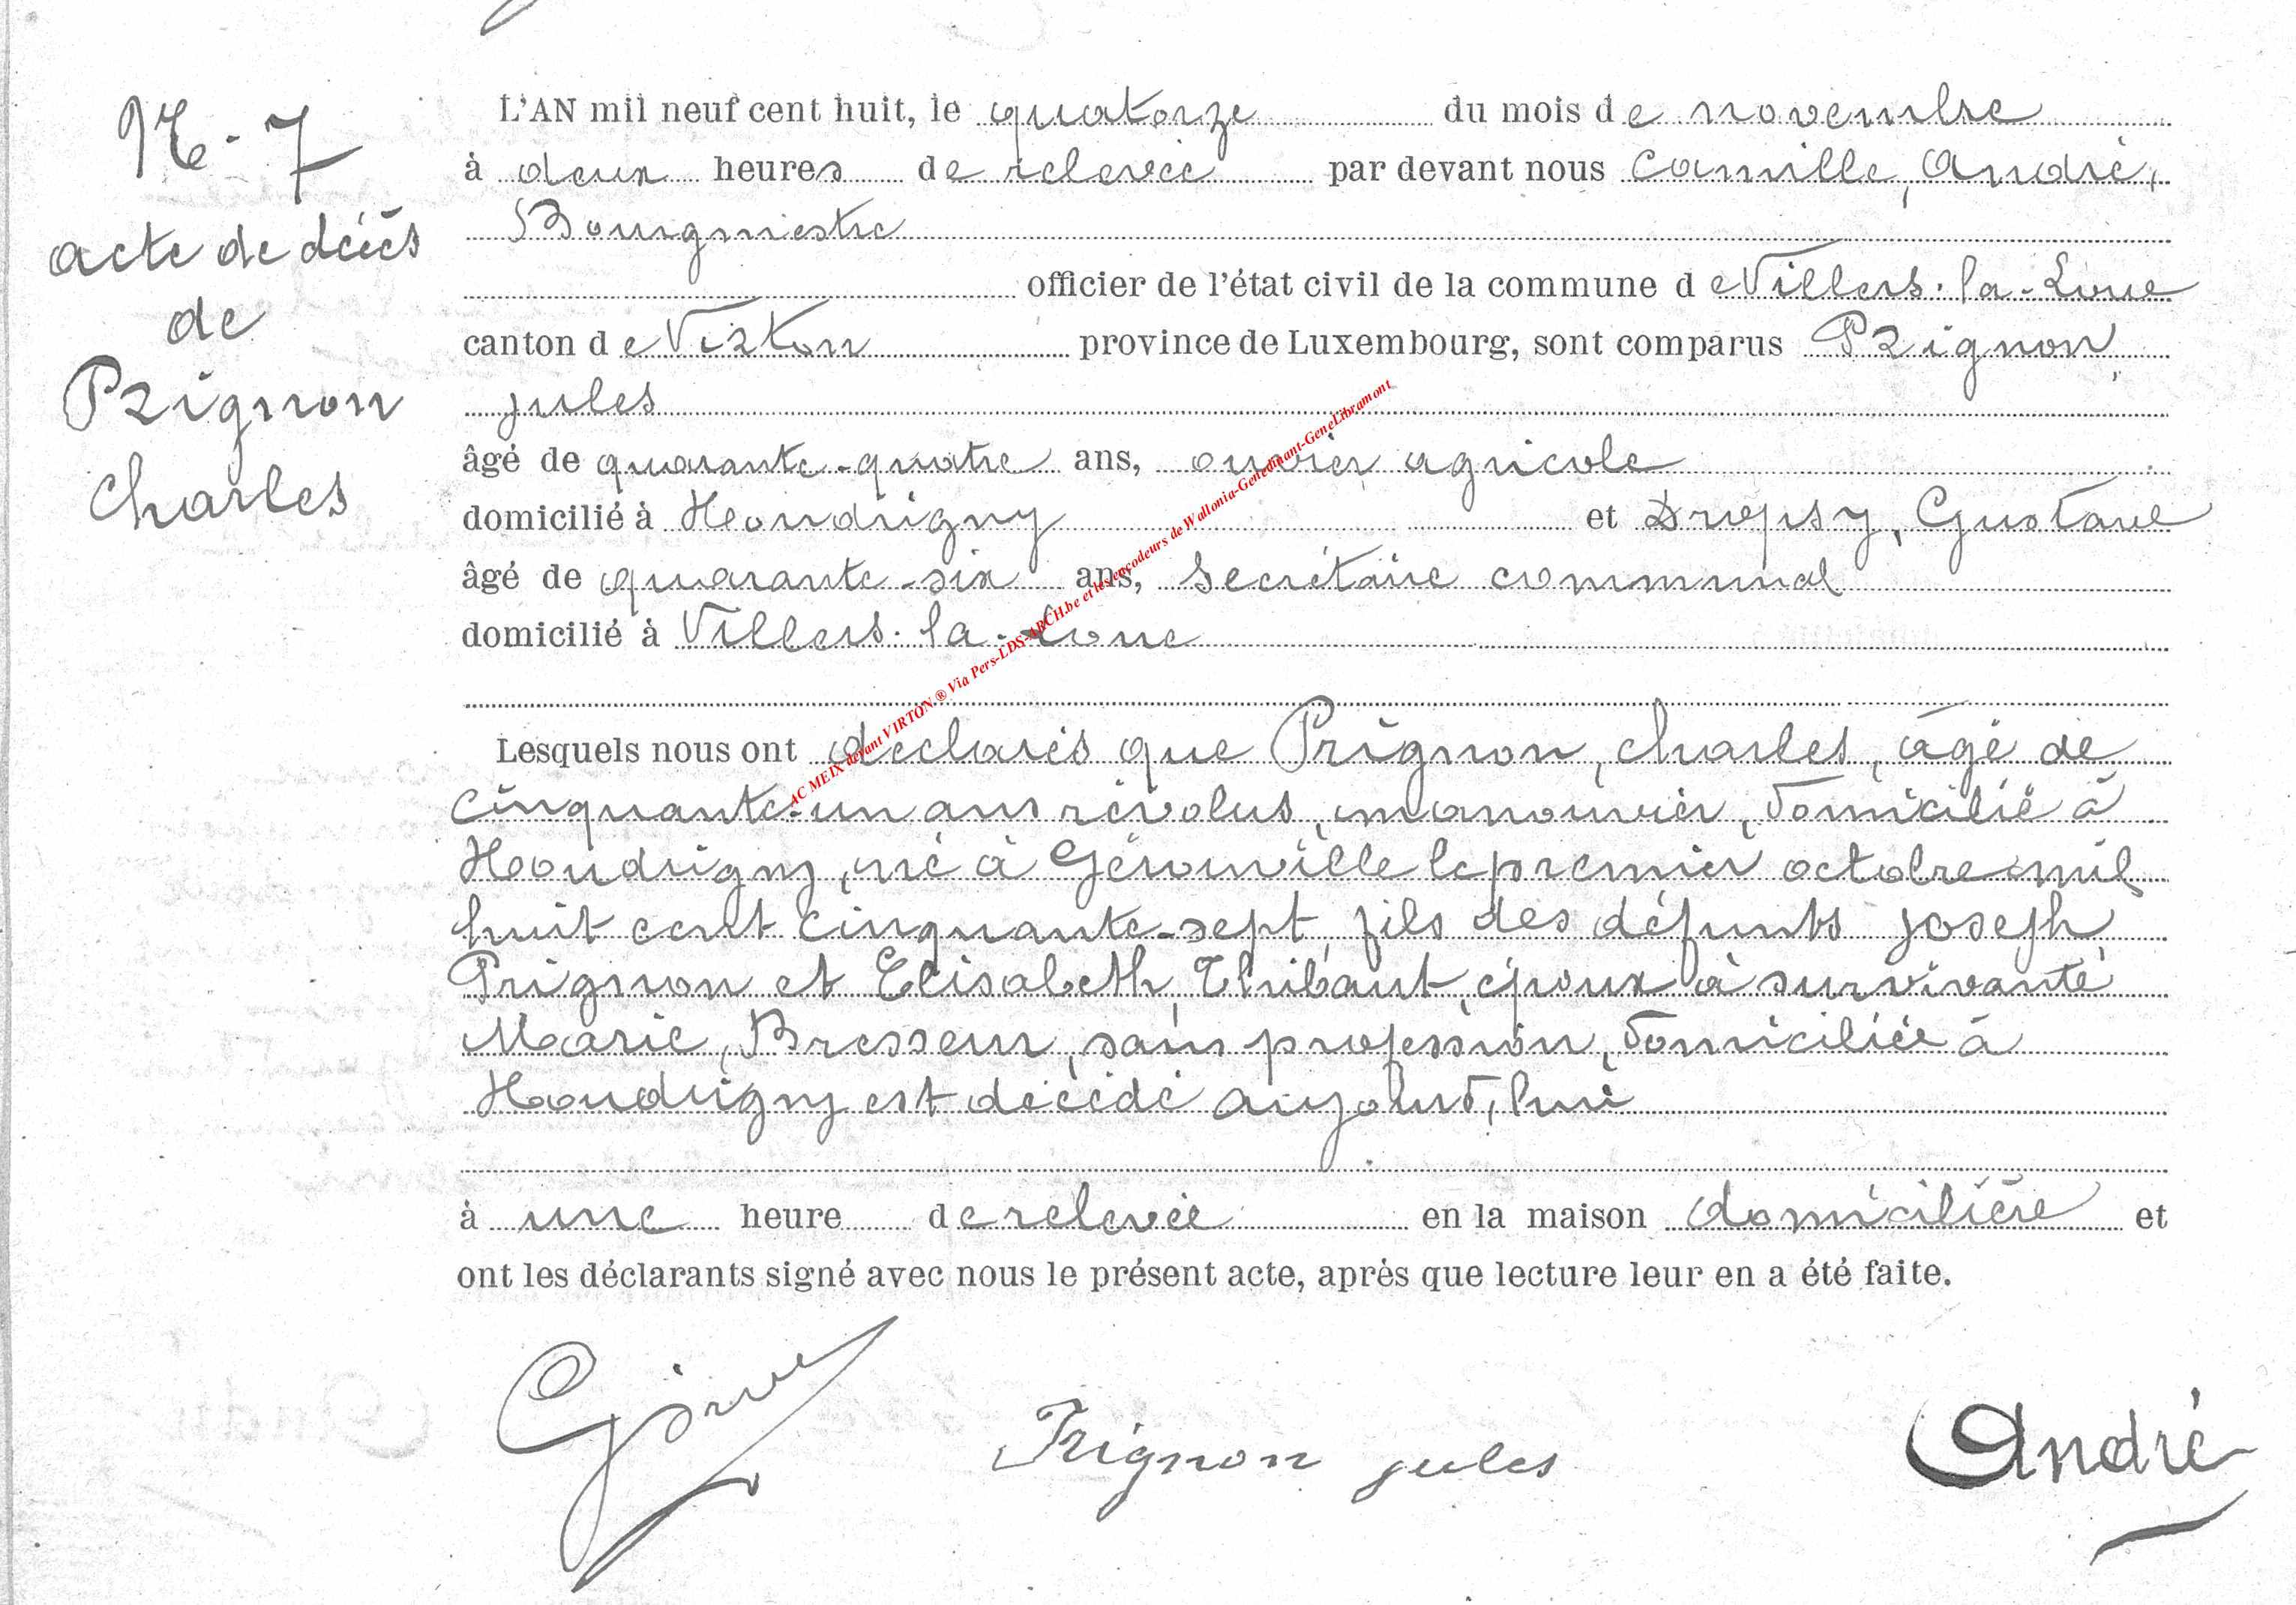 N° 7
acte de décès
de
Prignon
Charles
L'AN mil neuf cent huit, le quatorze du mois de novembre
à deux heures de relevée par devant nous Camille, André,
Bourgmestre
officier de l'état civil de la commune de Villers-la-Loue
canton de Virton province de Luxembourg, sont comparus Prignon,
jules
âgé de quarante-quatre ans, ouvrier agricole
domicilié à Houdrigny et Dropsy, Gustave
âgé de quarante-six ans, secrétaire communal
domicilié à Villers-la-Loue
Lesquels nous ont declarés que Prignon, Charles, âgé de
cinquante-un ans révolus, manouvrier, domicilié à
Houdrigny, né à Gérouville le premier octobre mil
huit cent cinquante-sept, fils des défunts joseph
Prignon et Elisabeth, Thibaut, époux à survivante
Marie, Bresseur, sans profession, domiciliée à
Houdrigny est décédé aujourd,hui
à une heure de relevée en la maison domicilière et
ont les déclarants signé avec nous le présent acte, après que lecture leur en a été faite.
Prignon jules
André
AC MEIX devant VIRTON ® Via Pers-LDS-ARCH.be et les encodeurs de Wallonia-Genedinant-GeneLibramont